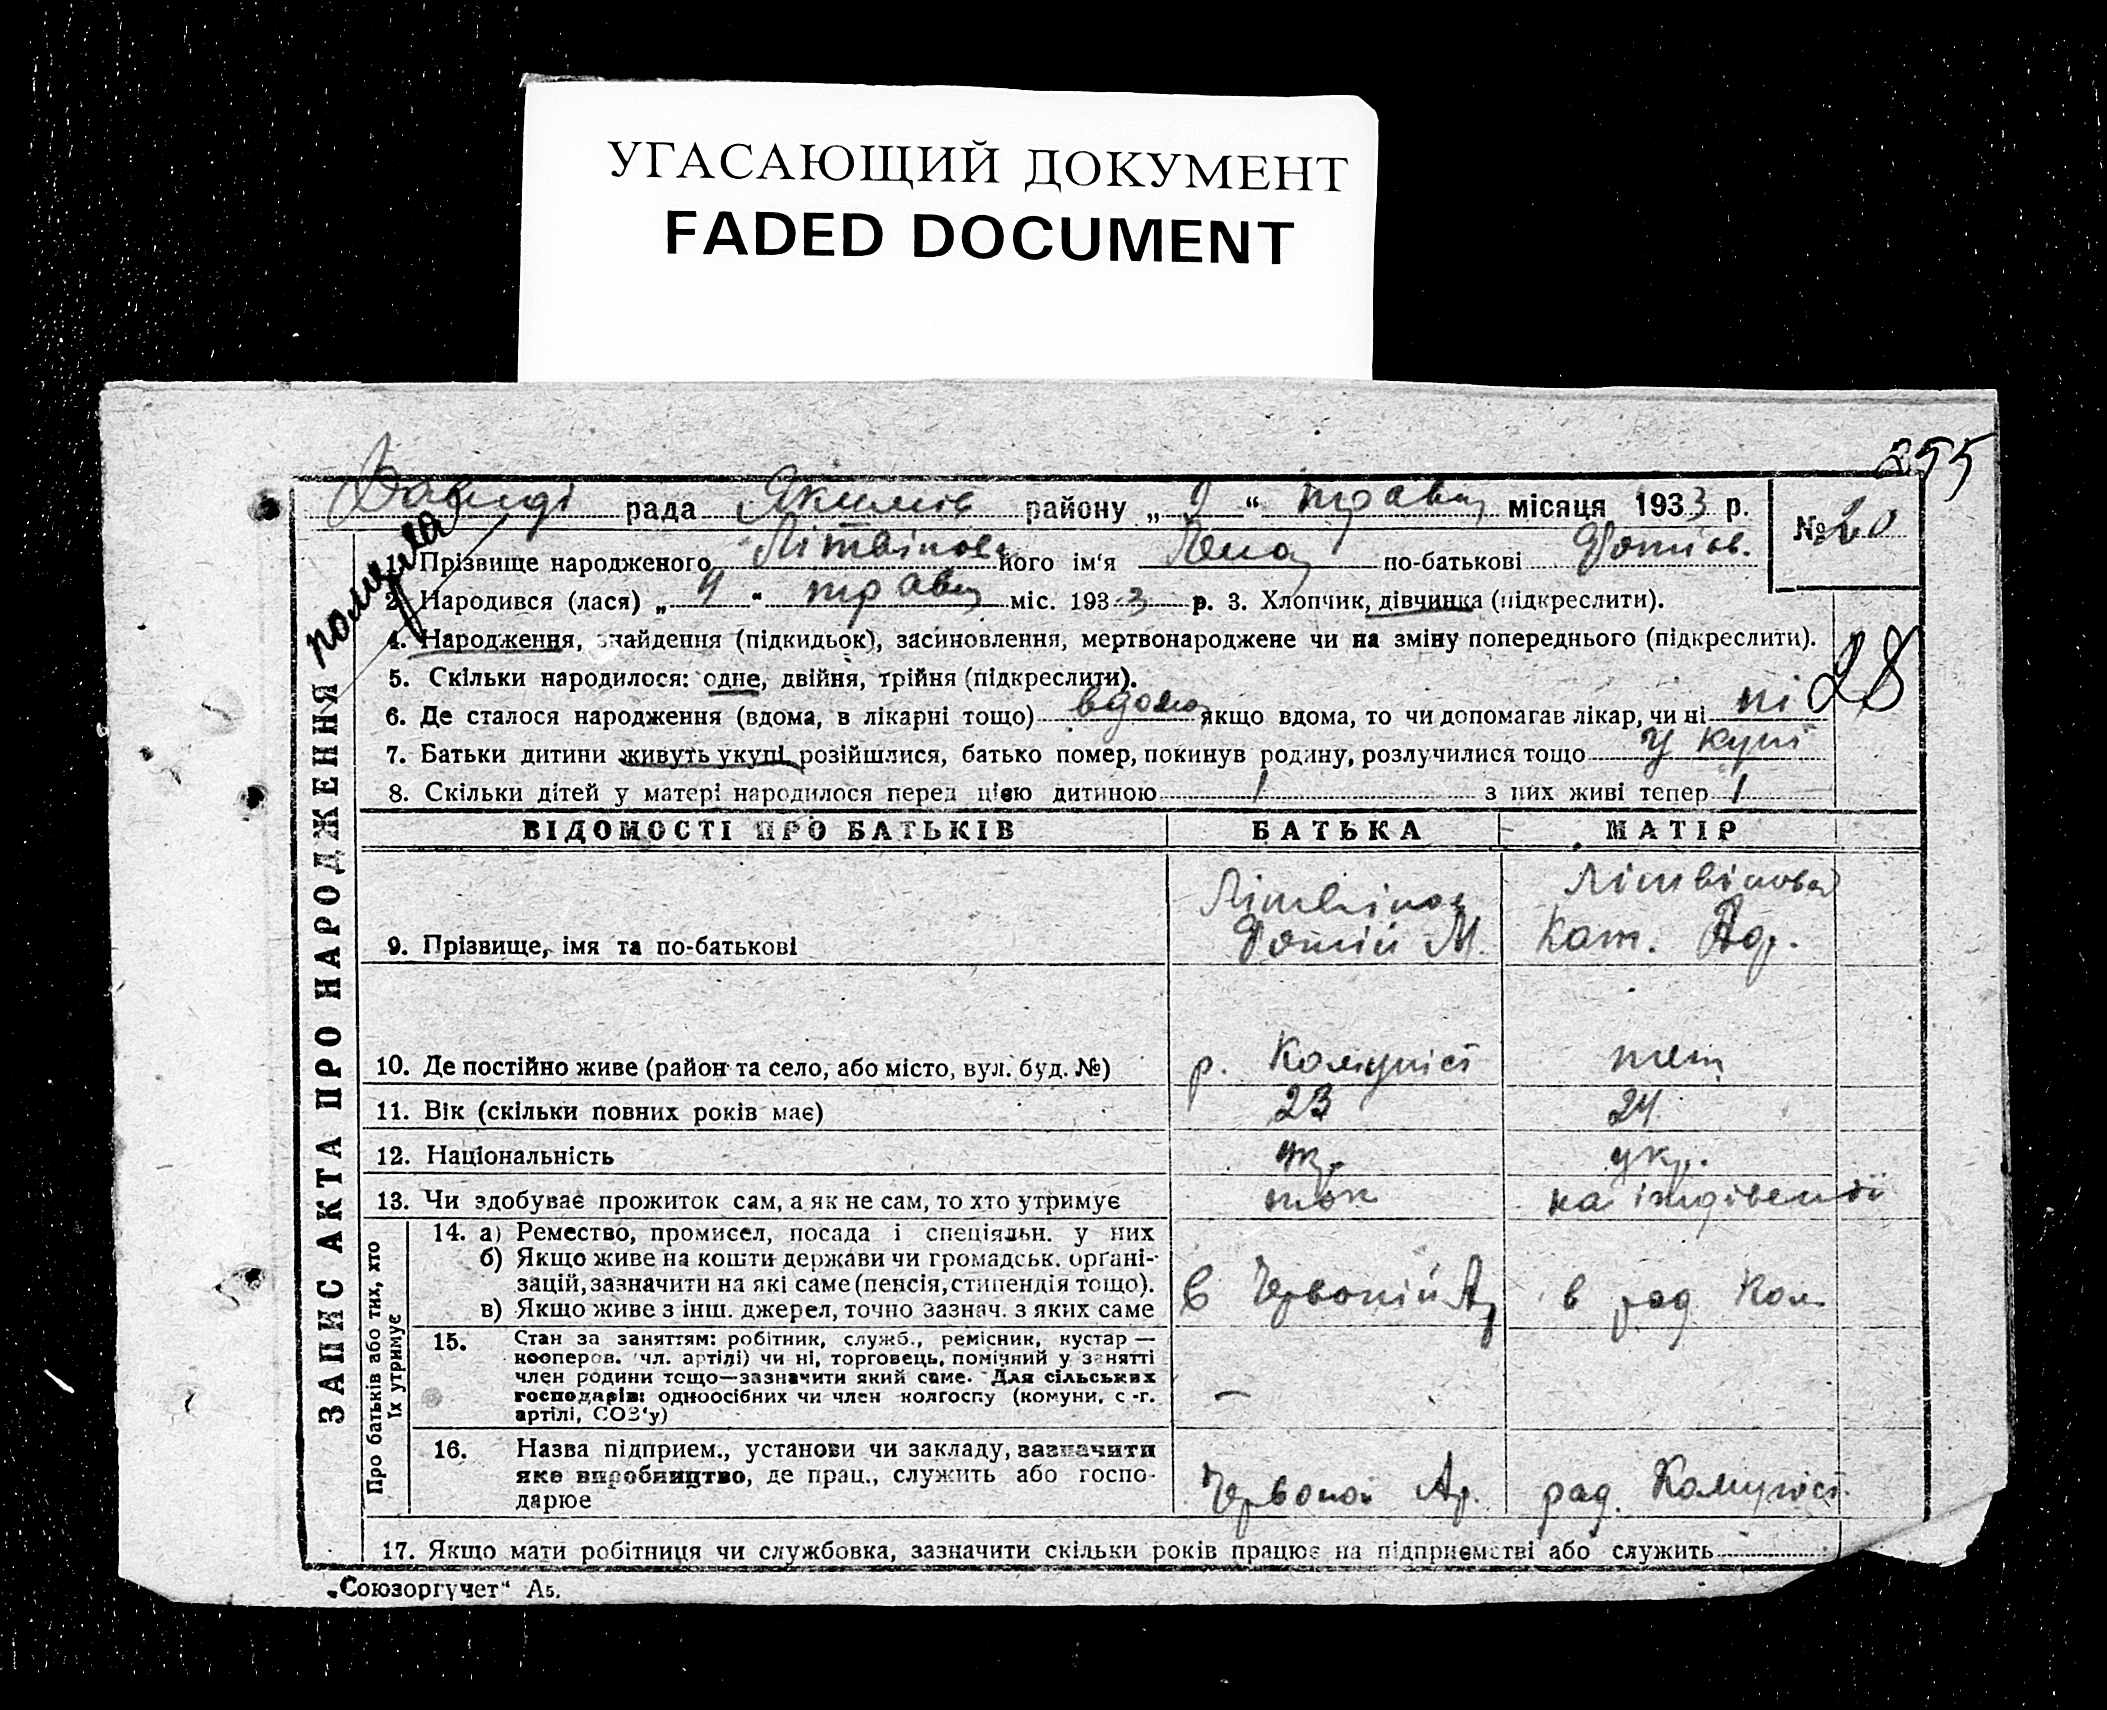 УГАСАЮЩИЙ ДОКУМЕНТ
FADED DOCUMENT
255
Давиді рада Якимів району „ 9 “ травня місяця 1933 р.
№ 20
померла
ЗАПИС АКТА ПРО НАРОДЖЕННЯ
1. Прізвище народженого Літвінова його ім'я Лєна по-батькові Фотіев.
2. Народився (лася) „ 4 “ травня міс. 1933 р. 3. Хлопчик, дівчинка (підкреслити).
4. Народження, знайдення (підкидьок), засиновлення, мертвонароджене чи на зміну попереднього (підкреслити).
28
5. Скільки народилося: одне, двійня, трійня (підкреслити).
6. Де сталося народження (вдома, в лікарні тощо) вдома якщо вдома, то чи допомагав лікар, чи ні ні
7. Батьки дитини живуть укупі, розійшлися, батько помер, покинув родину, розлучилися тощо у купі
8. Скільки дітей у матері народилося перед цією дитиною 1 з них живі тепер 1
ВІДОМОСТІ ПРО БАТЬКІВ БАТЬКА МАТІР
9. Прізвище, імя та по-батькові Літвінов Фотій М. Літвінова Кат. Адр.
10. Де постійно живе (район та село, або місто, вул. буд. №) р. Комуніст теж
11. Вік (скільки повних років має) 23 24
12. Національність укр. укр.
13. Чи здобуває прожиток сам, а як не сам, то хто утримує на іждівенії
Про батьків або тих, хто їх утримує
14. а) Ремество, промисел, посада і спеціяльн. у них
б) Якщо живе на кошти держави чи громадськ. органі-
зацій, зазначити на які саме (пенсія, стипендія тощо).
в) Якщо живе з інш. джерел, точно зазнач. з яких саме
в Червоній Ар в рад Ком.
15. Стан за заняттям: робітник, служб., ремісник, кустар —
кооперов. (чл. артілі) чи ні, торговець, помічний у занятті
член родини тощо—зазначити який саме. Для сільських
господарів: одноосібних чи член колгоспу (комуни, с.-г.
артілі, СОЗ'у) —
16. Назва підприєм., установи чи закладу, зазначити
яке виробництво, де прац., служить або госпо-
дарює
Червоной Ар. рад. Комуніст.
17. Якщо мати робітниця чи службовка, зазначити скільки років працює на підприємстві або служить
„Союзоргучет“ А5.